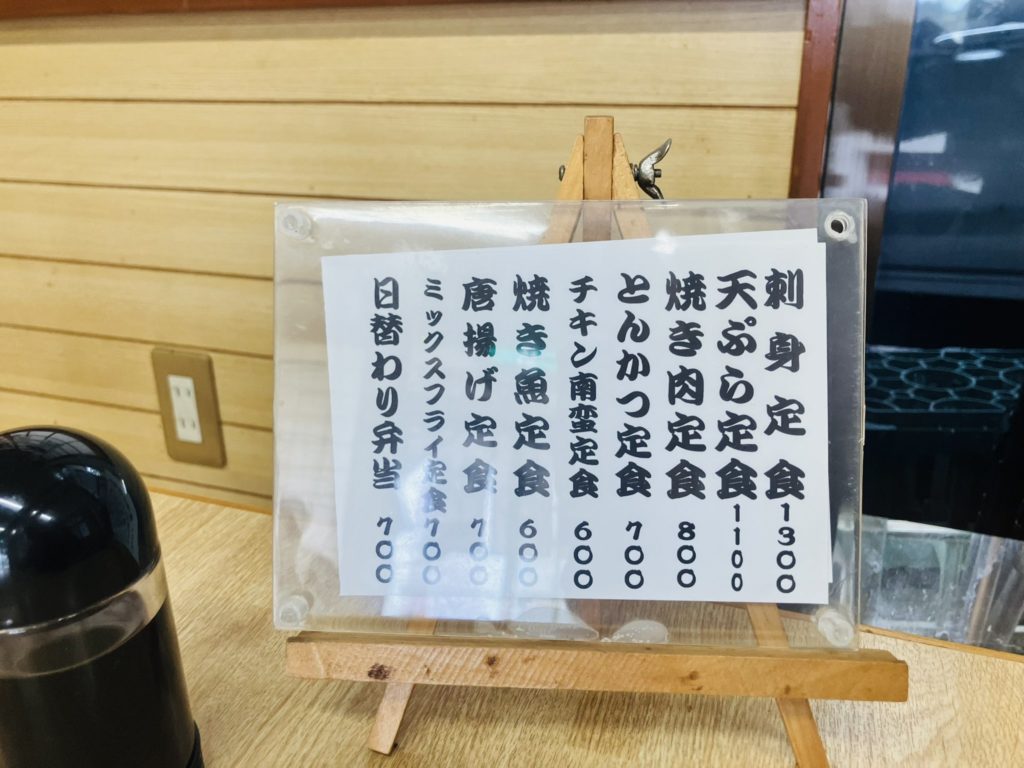 刺身定食1300
天ぷら定食1100
焼き肉定食800
とんかつ定食700
チキン南蛮定食600
焼き魚定食600
唐揚げ定食700
ミックスフライ定食700
日替わり弁当700